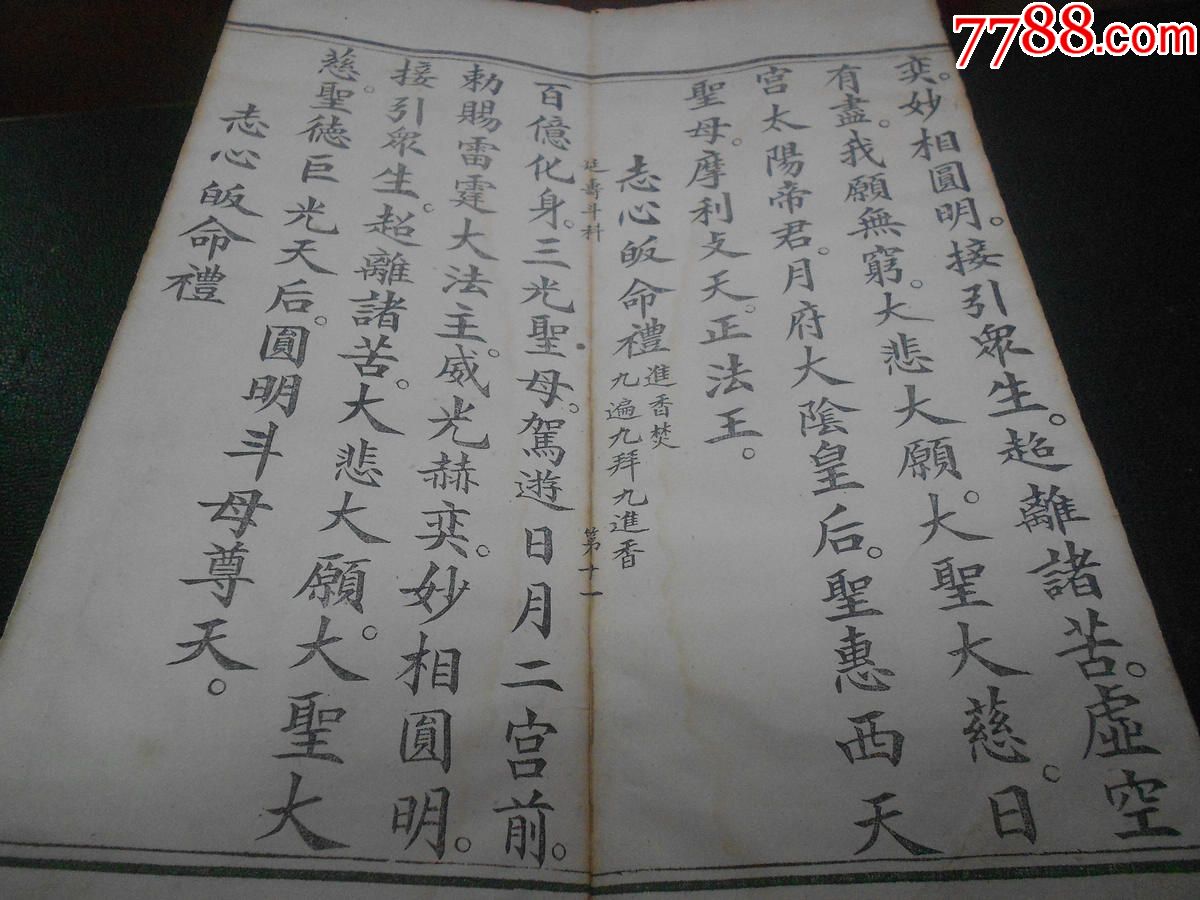 7788.com
奕。妙相圓明。接引眾生。超離諸苦。虛空
有盡。我願無窮。大悲大願。大聖大慈。日
宮太陽帝君。月府大陰皇后。聖惠西天
聖母。摩利支天。正法王。
志心皈命禮
進香焚
九遍九拜九進香
延壽斗科
第十一
百億化身。三光聖母。駕遊日月二宮前。
勅賜雷霆大法主。威光赫奕。妙相圓明。
接引眾生。超離諸苦。大悲大願。大聖大
慈。聖德巨光天后。圓明斗母尊天。
志心皈命禮